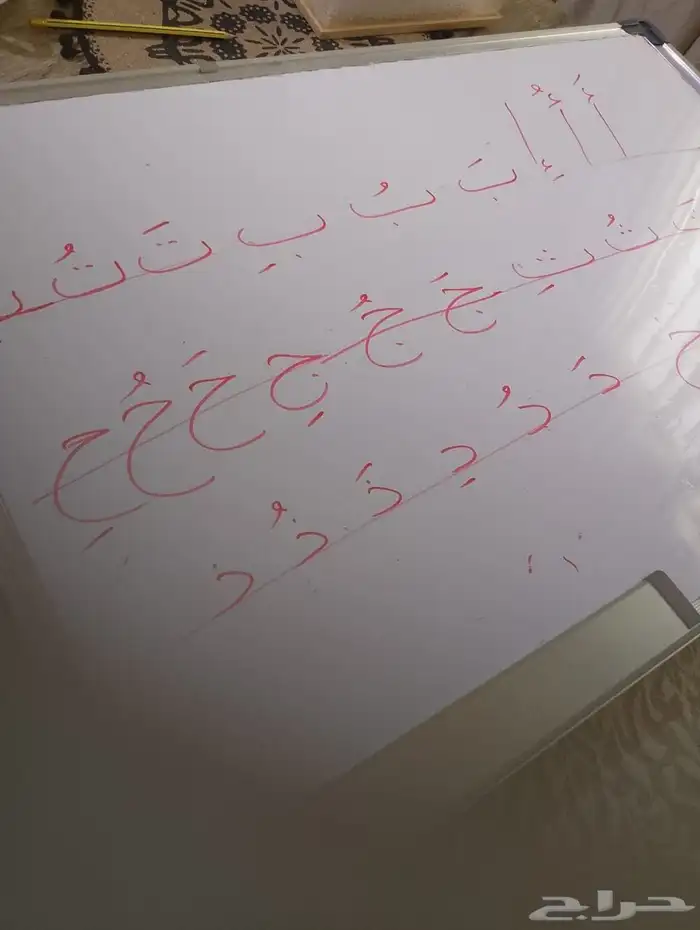 أَ أُ إِ بَ بُ بِ تَ تُ
ثُ ثِ جَ جُ جِ حَ حُ حِ
دَ دُ دِ ذَ ذُ د
حراج